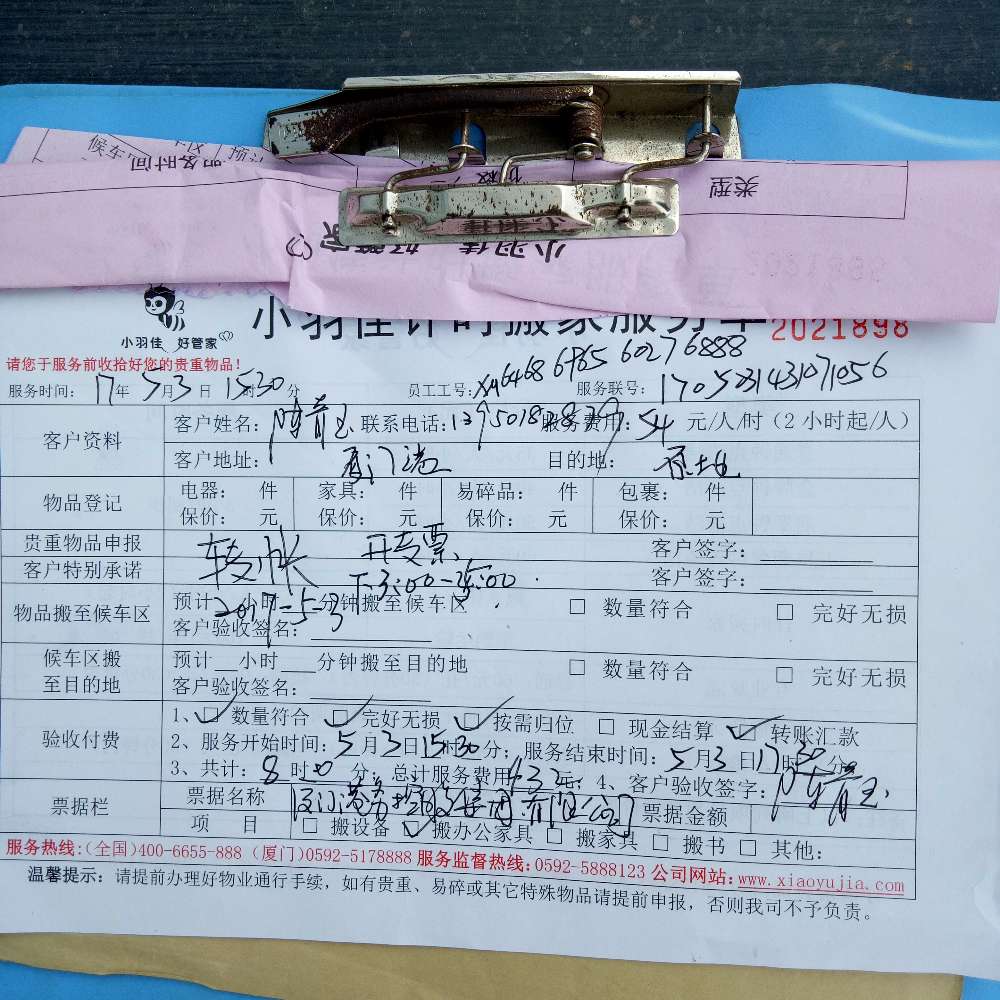 候车
明条时间
类型
小羽佳 好管家
小羽佳计时搬家服务单 2021898
小羽佳 好管家
请您于服务前收拾好您的贵重物品!
服务时间: 17年 5月3日 15时30分 员工工号: 服务联号:
客户资料
客户姓名: 陈青玉 联系电话: 服务费用: 54 元/人/时(2小时起/人)
客户地址: 厦门港 目的地: 原地
物品登记
电器: 件 家具: 件 易碎品: 件 包裹: 件
保价: 元 保价: 元 保价: 元 保价: 元
贵重物品申报 转帐 开专票 客户签字:
客户特别承诺 客户签字:
物品搬至候车区
预计 小时 分钟搬至候车区 □ 数量符合 □ 完好无损
2017-5-3
客户验收签名:
候车区搬至目的地
预计__小时___分钟搬至目的地 □ 数量符合 □ 完好无损
客户验收签名:
验收付费
1、☑ 数量符合 ☑ 完好无损 ☑ 按需归位 □ 现金结算 ☑ 转账汇款
2、服务开始时间: 5月3日15时30分; 服务结束时间: 5月3日17时30分
3、共计: 8时0分; 总计服务费用432元; 4、客户验收签字: 陈青玉
票据栏
票据名称 票据金额
项 目 □ 搬设备 ☑ 搬办公家具 □ 搬家具 □ 搬书 □ 其他:
服务热线:(全国)400-6655-888 (厦门)0592-5178888 服务监督热线:0592-5888123 公司网站:www.xiaoyujia.com
温馨提示: 请提前办理好物业通行手续, 如有贵重、易碎或其它特殊物品请提前申报, 否则我司不予负责。